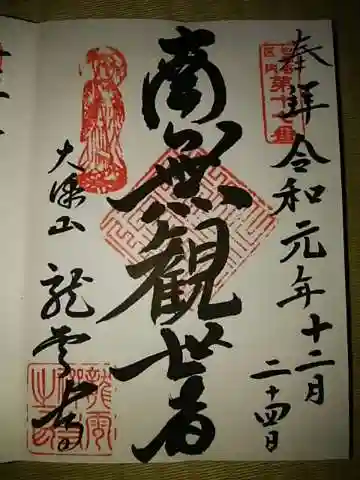 奉拝 令和元年十二月
二十四日
第十七番
区内
南無観世音
大澤山 龍雲寺